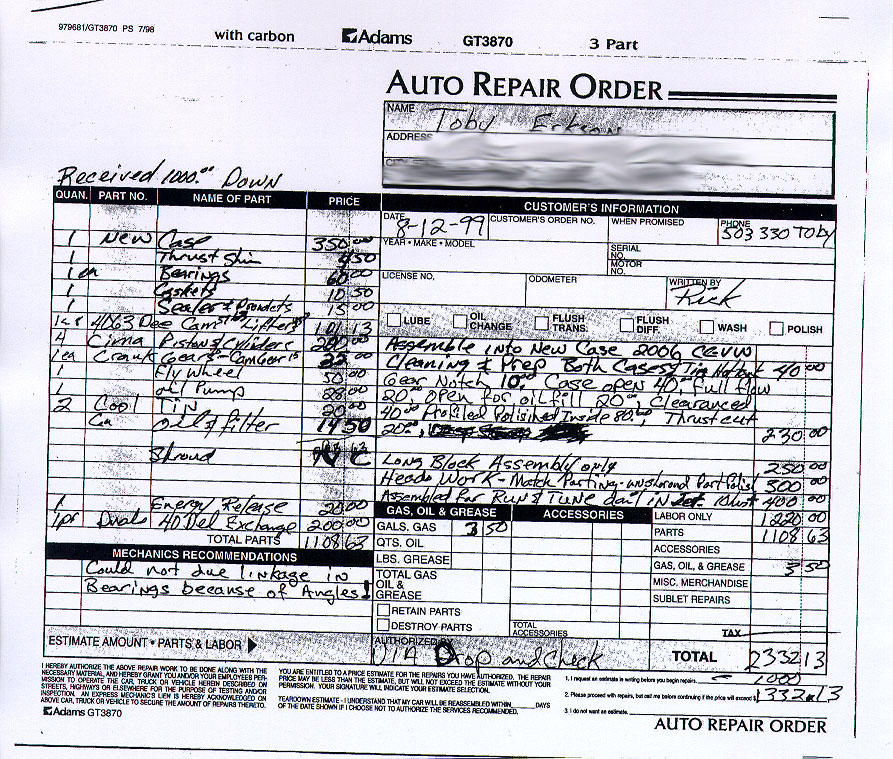 979681/GT3870 PS 7/98
with carbon
Adams
GT3870
3 Part
AUTO REPAIR ORDER
NAME Toby
ADDRESS
Received 1000.00 Down
QUAN. PART NO. NAME OF PART PRICE
CUSTOMER'S INFORMATION
DATE 8-12-99 CUSTOMER'S ORDER NO. WHEN PROMISED PHONE 503 330 Toby
YEAR • MAKE • MODEL SERIAL NO. MOTOR NO.
LICENSE NO. ODOMETER WRITTEN BY Rick
LUBE OIL CHANGE FLUSH TRANS. FLUSH DIFF. WASH POLISH
1 New Case 350 00
1 Thrust Shim 4 50
1 ea Bearings 60 00
1 Gaskets 10 50
1 Sealer & Products 15 00
4063 Dee Cam Lifters 101 13
4 Cima Pistons & Cylinders 200 00
1 ea Crank Gears - Cam Gear 22 00
1 Fly Wheel 50 00
1 oil Pump 28 00
2 Cool Tin 20 00
oil & filter 14 50
Shroud N C
1 Energy Release 20 00
1pr Duals 40 Del Exchange 200 00
TOTAL PARTS 1108 63
Assemble into New Case 2006 CC VW
Cleaning & Prep Both Cases Tin Hottank 40 00
Gear Notch 10.00 Case open 40.00 full flow
20.00 open for oil fill 20.00, Clearanced
40.00 Profiled Polished Inside 80.00, Thrust cut
20.00, 230 00
Long Block Assembly only 250 00
Heads Work - Match Porting - unshroud Port Polish 300 00
Assembled for Run & Tune 400 00
GAS, OIL & GREASE ACCESSORIES LABOR ONLY 1220 00
GALS. GAS 3 50 PARTS 1108 63
QTS. OIL ACCESSORIES
LBS. GREASE GAS, OIL, & GREASE 3 50
TOTAL GAS OIL & GREASE MISC. MERCHANDISE
SUBLET REPAIRS
RETAIN PARTS
DESTROY PARTS TOTAL ACCESSORIES TAX
MECHANICS RECOMMENDATIONS
Could not due linkage in
Bearings because of Angles!
ESTIMATE AMOUNT • PARTS & LABOR
AUTHORIZED BY Drop and Check
TOTAL 2332 13
- 1000
1332.13
I HEREBY AUTHORIZE THE ABOVE REPAIR WORK TO BE DONE ALONG WITH THE
NECESSARY MATERIAL, AND HEREBY GRANT YOU AND/OR YOUR EMPLOYEES PER-
MISSION TO OPERATE THE CAR, TRUCK OR VEHICLE HEREIN DESCRIBED ON
STREETS, HIGHWAYS OR ELSEWHERE FOR THE PURPOSE OF TESTING AND/OR
INSPECTION. AN EXPRESS MECHANICS LIEN IS HEREBY ACKNOWLEDGED ON
ABOVE CAR, TRUCK OR VEHICLE TO SECURE THE AMOUNT OF REPAIRS THERETO.
YOU ARE ENTITLED TO A PRICE ESTIMATE FOR THE REPAIRS YOU HAVE AUTHORIZED. THE REPAIR
PRICE MAY BE LESS THAN THE ESTIMATE, BUT WILL NOT EXCEED THE ESTIMATE WITHOUT YOUR
PERMISSION. YOUR SIGNATURE WILL INDICATE YOUR ESTIMATE SELECTION.
TEARDOWN ESTIMATE - I UNDERSTAND THAT MY CAR WILL BE REASSEMBLED WITHIN DAYS
OF THE DATE SHOWN IF I CHOOSE NOT TO AUTHORIZE THE SERVICES RECOMMENDED.
1. I request an estimate in writing before you begin repairs.
2. Please proceed with repairs, but call me before continuing if the price will exceed $
3. I do not want an estimate.
Adams GT3870
AUTO REPAIR ORDER